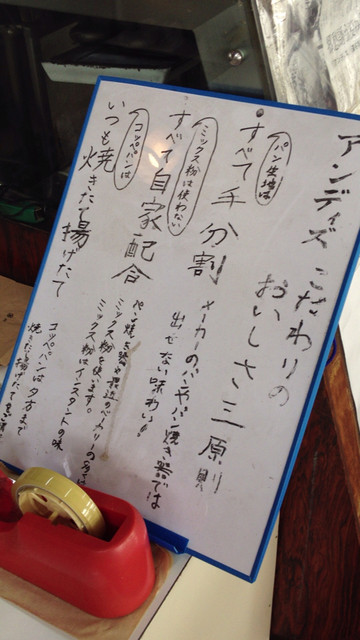 アンディズ こだわりの
おいしさ三原則
パン生地は
すべて手分割
メーカーのパンやパン焼き器では
出せない味わい。
ミックス粉は使わない
すべて自家配合
パン焼き器や最近のベーカリーの多くは
ミックス粉を使います。
ミックス粉はインスタントの味
コッペパンは
いつも焼きたて揚げたて
コッペパンは夕方まで
焼きたて揚げたて